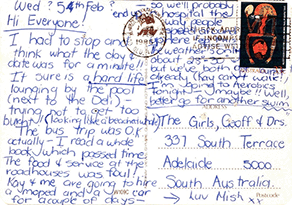 Wed? 5th Feb?
Hi Everyone!
I had to stop and
think what the day &
date was for a minute!
It sure is a hard life
lounging by the pool
(next to the Deli)
trying not to get too
burnt (looking like a beached whale)
The bus trip was O.K
actually - I read a whole
book which passed time.
The food & service at the
roadhouses was foul!
Kay & me are going to hire
a moped and a car
for a couple of days -
so we'll probably
end up in
hospital the
way people
1985
weather's on
about 29°
we've both
already (they can't wait)
I'm going to Aerobics
tonight so maybe I will
better go for another swim
The Girls, Geoff & Drs.
337 South Terrace
Adelaide 5000
South Australia.
Postcode
→ Luv Mish xx